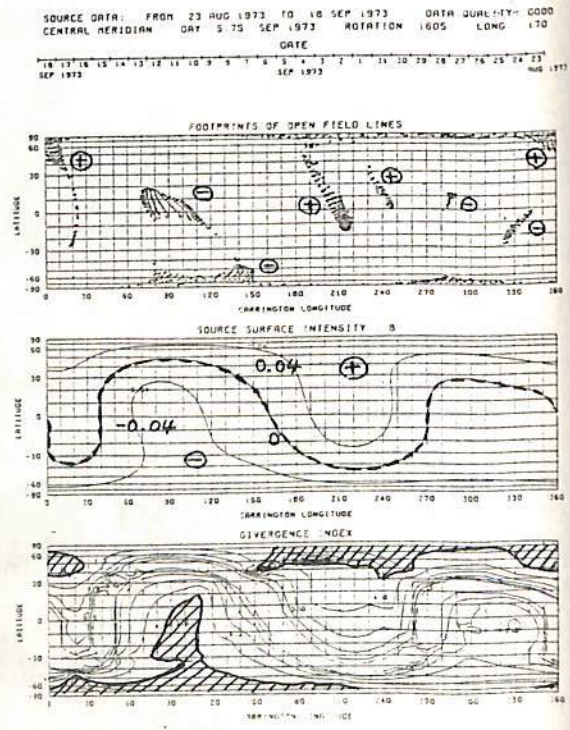 SOURCE DATA: FROM 23 AUG 1973 TO 18 SEP 1973 DATA QUALITY: GOOD
CENTRAL MERIDIAN DAY 5.75 SEP 1973 ROTATION 1605 LONG 170
DATE
18 17 16 15 14 13 12 11 10 9 8 7 6 5 4 3 2 1 31 30 29 28 27 26 25 24 23
SEP 1973 SEP 1973 AUG 1973
FOOTPRINTS OF OPEN FIELD LINES
LATITUDE
90
60
30
0
-30
-60
-90
+ - + + - + - -
0 30 60 90 120 150 180 210 240 270 300 330 360
CARRINGTON LONGITUDE
SOURCE SURFACE INTENSITY B
LATITUDE
90
60
30
0
-30
-60
-90
0.04 +
-0.04 0
-
0 30 60 90 120 150 180 210 240 270 300 330 360
CARRINGTON LONGITUDE
DIVERGENCE INDEX
LATITUDE
90
60
30
0
-30
-60
-90
0 30 60 90 120 150 180 210 240 270 300 330 360
CARRINGTON LONGITUDE